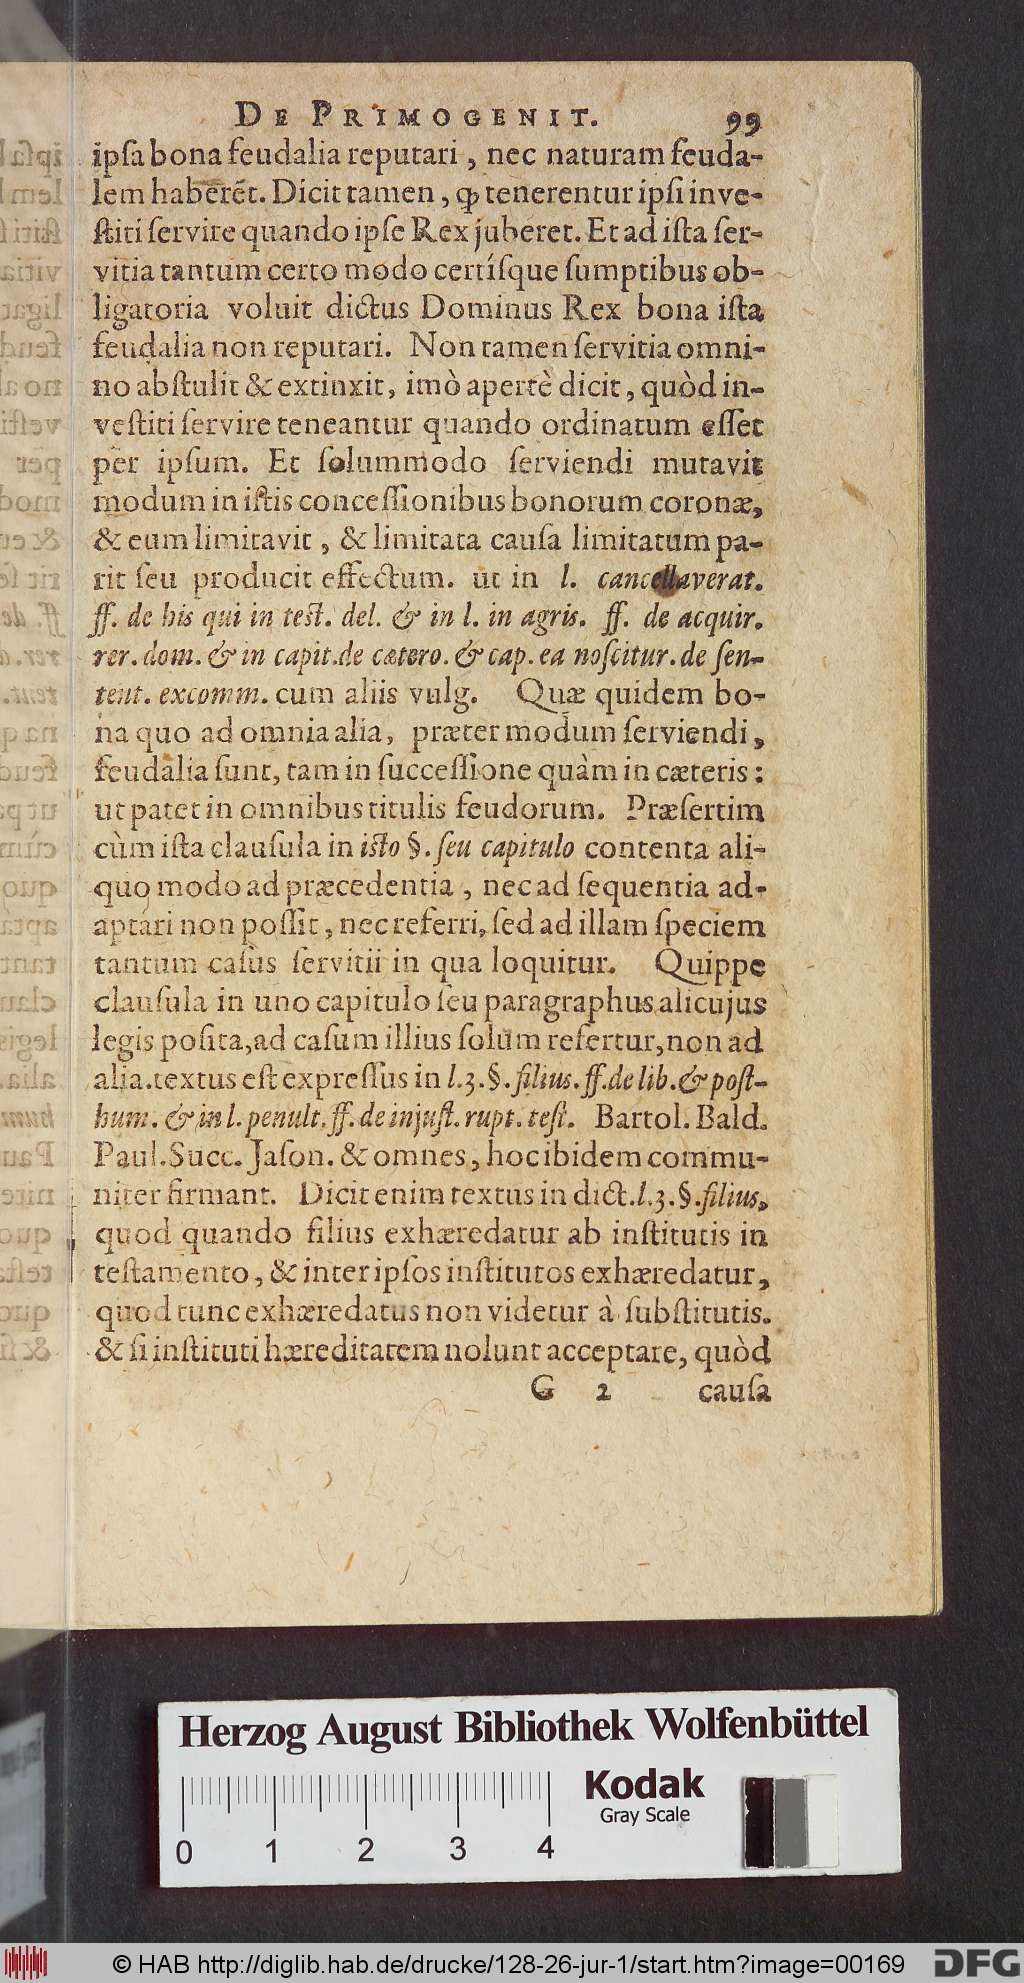 DE PRIMOGENIT. 99
ipſa bona feudalia reputari, nec naturam feuda-
lem haberēt. Dicit tamen, ꝙ tenerentur ipſi inve-
ſtiti ſervire quando ipſe Rex juberet. Et ad iſta ſer-
vitia tantum certo modo certíſque ſumptibus ob-
ligatoria voluit dictus Dominus Rex bona iſta
feudalia non reputari. Non tamen ſervitia omni-
no abſtulit & extinxit, imò apertè dicit, quòd in-
veſtiti ſervire teneantur quando ordinatum eſſet
per ipſum. Et ſolummodo ſerviendi mutavit
modum in iſtis conceſſionibus bonorum coronæ,
& eum limitavit, & limitata cauſa limitatum pa-
rit ſeu producit effectum. ut in l. cancellaverat.
ff. de his qui in teſt. del. & in l. in agris. ff. de acquir.
rer. dom. & in capit. de cætero. & cap. ea noſcitur. de ſen-
tent. excomm. cum aliis vulg. Quæ quidem bo-
na quo ad omnia alia, præter modum ſerviendi,
feudalia ſunt, tam in ſucceſſione quàm in cæteris:
ut patet in omnibus titulis feudorum. Præſertim
cùm iſta clauſula in iſto §. ſeu capitulo contenta ali-
quo modo ad præcedentia, nec ad ſequentia ad-
aptari non poſſit, nec referri, ſed ad illam ſpeciem
tantum caſus ſervitii in qua loquitur. Quippe
clauſula in uno capitulo ſeu paragraphus alicujus
legis poſita, ad caſum illius ſolùm refertur, non ad
alia. textus eſt expreſſus in l. 3. §. filius. ff. de lib. & poſt-
hum. & in l. penult. ff. de injuſt. rupt. teſt. Bartol. Bald.
Paul. Succ. Jaſon. & omnes, hoc ibidem commu-
niter firmant. Dicit enim textus in dict. l. 3. §. filius,
quod quando filius exhæredatur ab inſtitutis in
teſtamento, & inter ipſos inſtitutos exhæredatur,
quod tunc exhæredatus non videtur à ſubſtitutis.
& ſi inſtituti hæreditatem nolunt acceptare, quòd
G 2 cauſa
Herzog August Bibliothek Wolfenbüttel
Kodak
Gray Scale
0 1 2 3 4
© HAB http://diglib.hab.de/drucke/128-26-jur-1/start.htm?image=00169
DFG